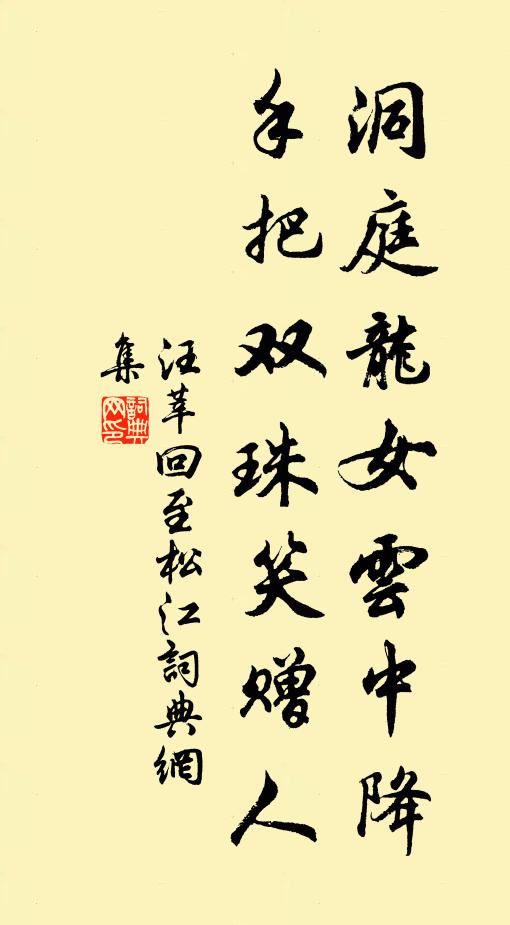 洞庭龍女雲中降
手把双珠笑贈人
汪莘回至松江詞典網
集
詞典
网印